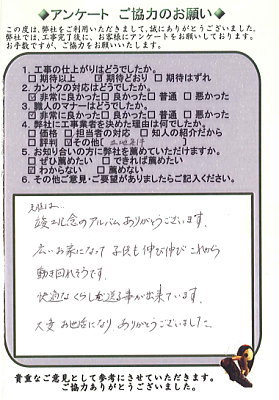 ◆アンケート ご協力のお願い◆
この度は、弊社をご利用いただきまして、誠にありがとうございました。
弊社では、工事完了後に、お客様にアンケートをお願いしております。
お手数ですが、ご協力をお願いいたします。
1. 工事の仕上がりはどうでしたか。
□期待以上 ☑期待どおり □期待はずれ
2. カントクの対応はどうでしたか。
☑非常に良かった □良かった □普通 □悪かった
3. 職人のマナーはどうでしたか。
☑非常に良かった □良かった □普通 □悪かった
4. 弊社に工事業者を決めた理由は何でしたか。
□価格 □担当者の対応 □知人の紹介だから
□評判 ☑その他( 土地条件 )
5. お知り合いの方に弊社を薦めていただけますか。
□ぜひ薦めたい □できれば薦めたい
☑わからない □薦めない
6. その他ご意見・ご要望がありましたらご記入ください。
先日は…
竣工記念のアルバムありがとうございます。
広いお家になって 子供も伸び伸び これから
動き回れそうです。
快適なくらしを送る事が出来ています。
大変 お世話になり ありがとうございました。
貴重なご意見として参考にさせていただきます。
ご協力ありがとうございました。